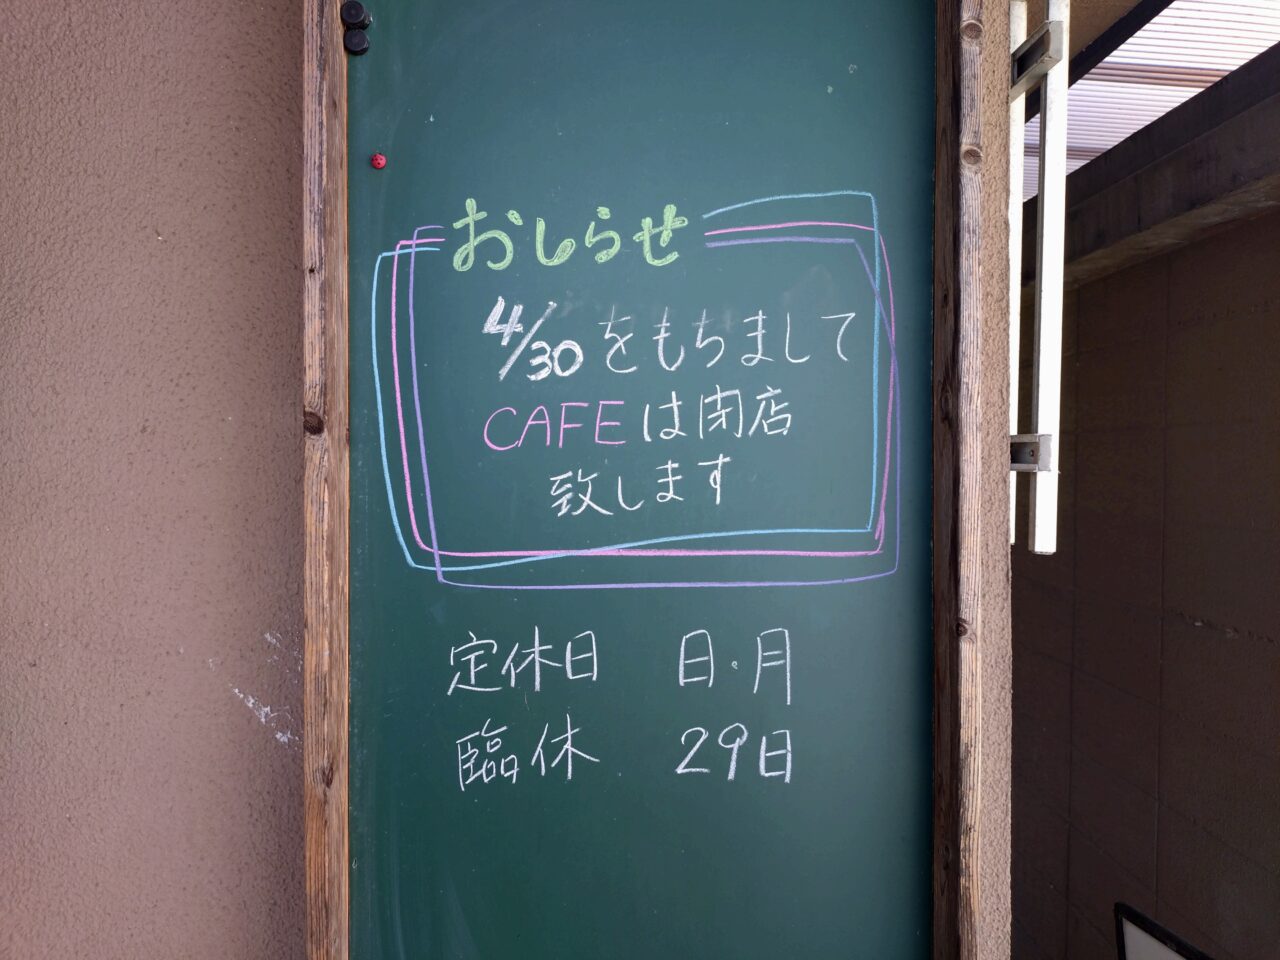 おしらせ
4/30をもちまして
CAFEは閉店
致します
定休日 日・月
臨休 29日